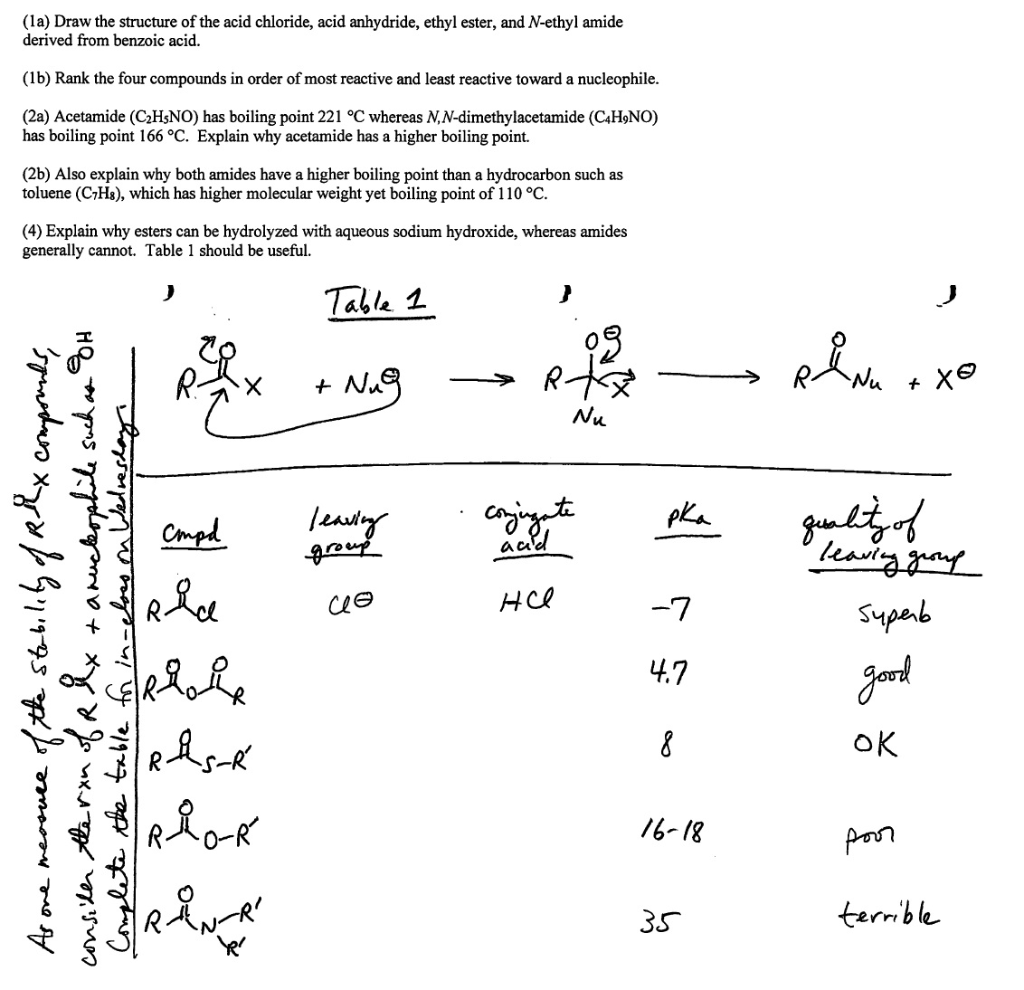 (1a) Draw the structure of the acid chloride, acid anhydride, ethyl ester, and N-ethyl amide
derived from benzoic acid.
(1b) Rank the four compounds in order of most reactive and least reactive toward a nucleophile.
(2a) Acetamide (C₂H₅NO) has boiling point 221 °C whereas N,N-dimethylacetamide (C₄H₉NO)
has boiling point 166 °C. Explain why acetamide has a higher boiling point.
(2b) Also explain why both amides have a higher boiling point than a hydrocarbon such as
toluene (C₇H₈), which has higher molecular weight yet boiling point of 110 °C.
(4) Explain why esters can be hydrolyzed with aqueous sodium hydroxide, whereas amides
generally cannot. Table 1 should be useful.
Table 1
R O X + Nu⊖ → R O⊖ X Nu → R O Nu + X⊖
cmpd leaving group conjugate acid pKa quality of leaving group
R O Cl Cl⊖ HCl -7 superb
R O O O R 4.7 good
R O S-R' 8 OK
R O O-R' 16-18 poor
R O N-R' R' 35 terrible
As one measure of the stability of R O X compounds,
consider the rxn of R O X + a nucleophile such as ⊖OH
Complete the table for in-class on Wednesday.